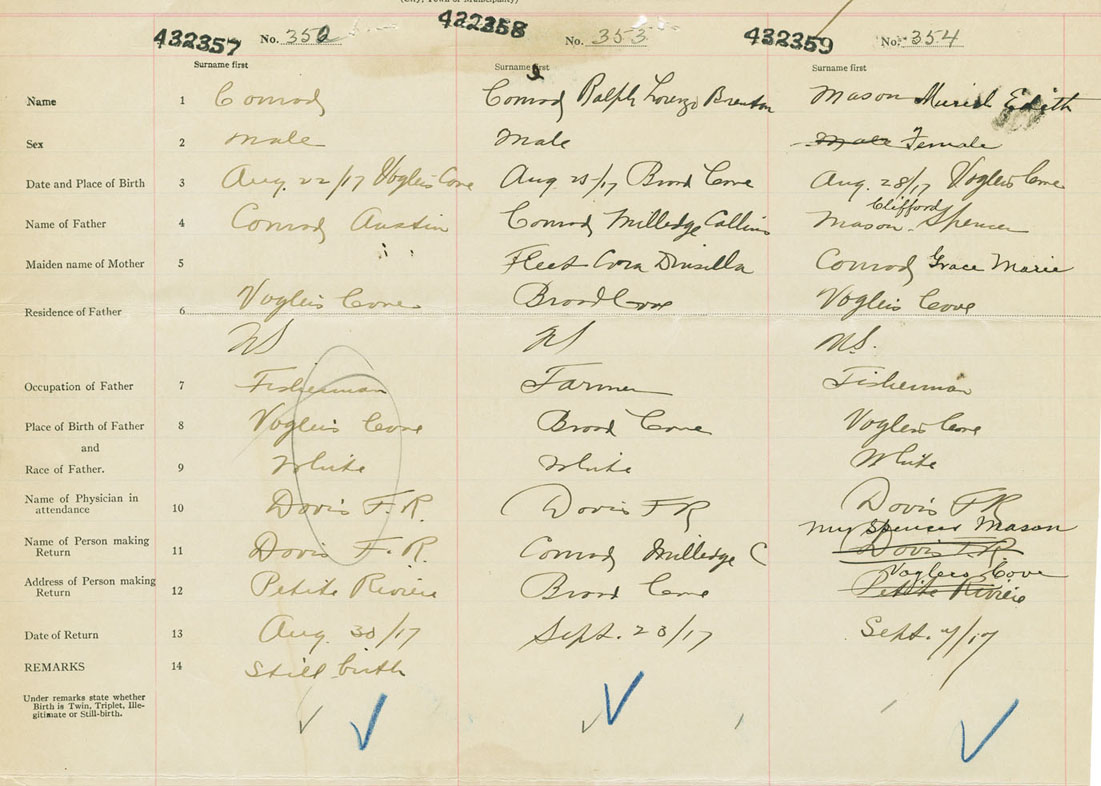 (City, Town or Municipality)
432357 No. 352 432358 No. 353 432359 No. 354
Surname first Surname first Surname first
Name 1 Conrad Conrad Ralph Lorenzo Brenton Mason Muriel Edith
Sex 2 male Male Male Female
Date and Place of Birth 3 Aug. 22/17 Voglers Cove Aug 25/17 Broad Cove Aug. 28/17 Voglers Cove
Clifford
Name of Father 4 Conrad Austin Conrad Milledge Collins Mason Spencer
Maiden name of Mother 5 Fleet Cora Drusilla Conrad Grace Marie
Residence of Father 6 Voglers Cove Broad Cove Voglers Cove
NS NS N.S.
Occupation of Father 7 Fisherman Farmer Fisherman
Place of Birth of Father 8 Voglers Cove Broad Cove Voglers Cove
and
Race of Father. 9 White White White
Name of Physician in
attendance 10 Davis F. R. Davis F R Davis F R
Spencer Mason
Name of Person making
Return 11 Davis F. R. Conrad Milledge C Davis F R
Voglers Cove
Address of Person making
Return 12 Petite Riviere Broad Cove Petite Riviere
Date of Return 13 Aug. 30/17 Sept. 23/17 Sept. /17
REMARKS 14 Still birth
Under remarks state whether
Birth is Twin, Triplet, Ille-
gitimate or Still-birth.